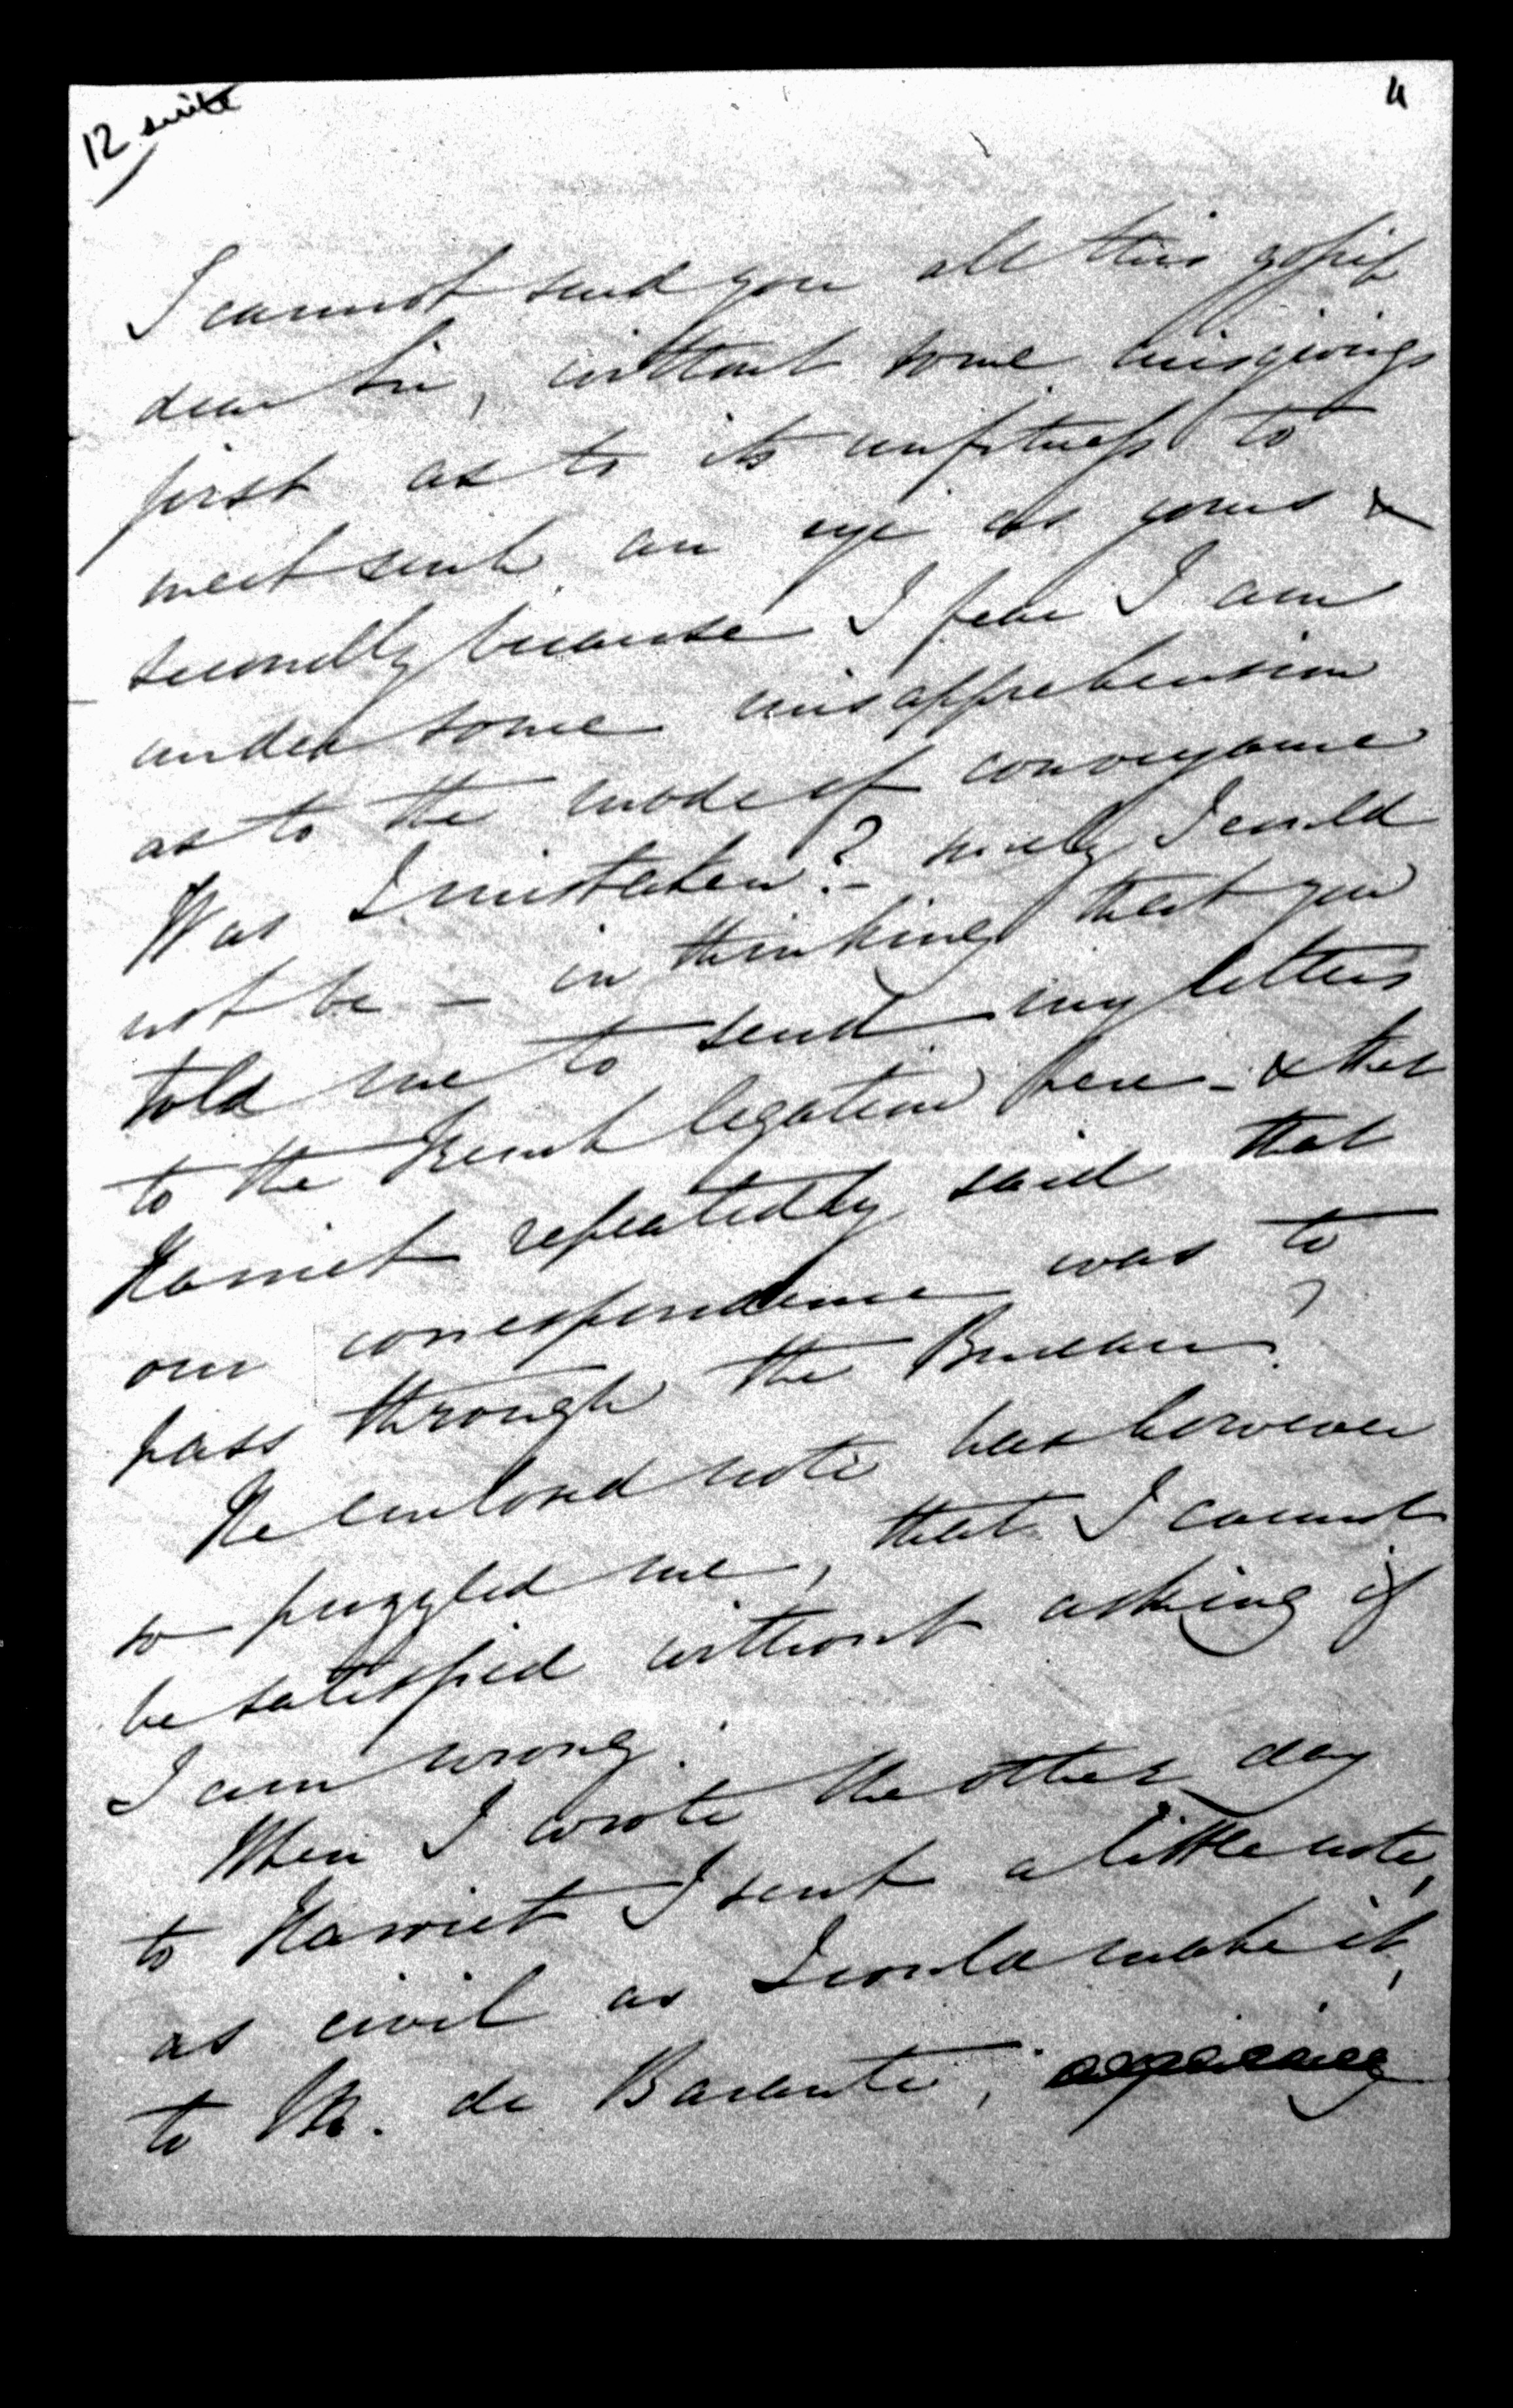 12 suite
4
I cannot send you all this gossip
dear Sir, without some misgivings
first as to its unfitness to
meet such an eye as yours &
secondly because I fear I am
under some misapprehension
as to the mode of conveyance
Was I mistaken? - surely I could
not be - in thinking that you
told me to send my letters
to the French legation here - & that
Harriet repeatedly said that
our correspondence was to
pass through the Bureau?
The enclosed note has however
so puzzled me, that I cannot
be satisfied without asking if
I am wrong.
When I wrote the other day
to Harriet I sent a little note,
as civil as I could make it,
to M. de Barante,